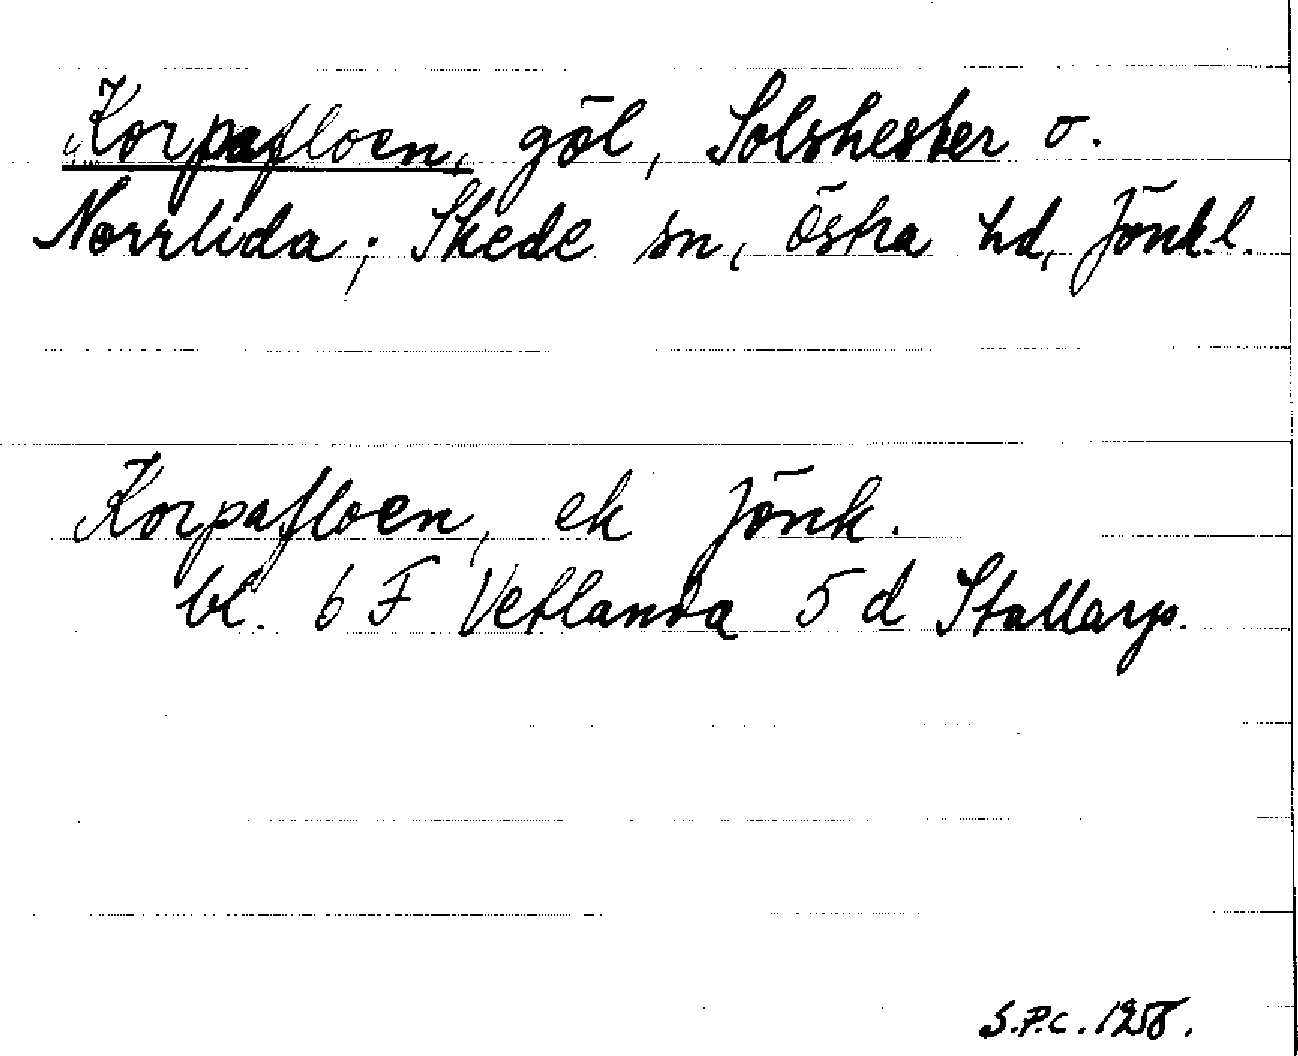 Korpafloen, göl, Solshester o.
Norrlida; Skede sn, Östra hd, Jönk.l.
Korpafloen, ek Jönk.
bl. 6 F Vetlanda 5 d Stallarp.
S.P.C. 1958.